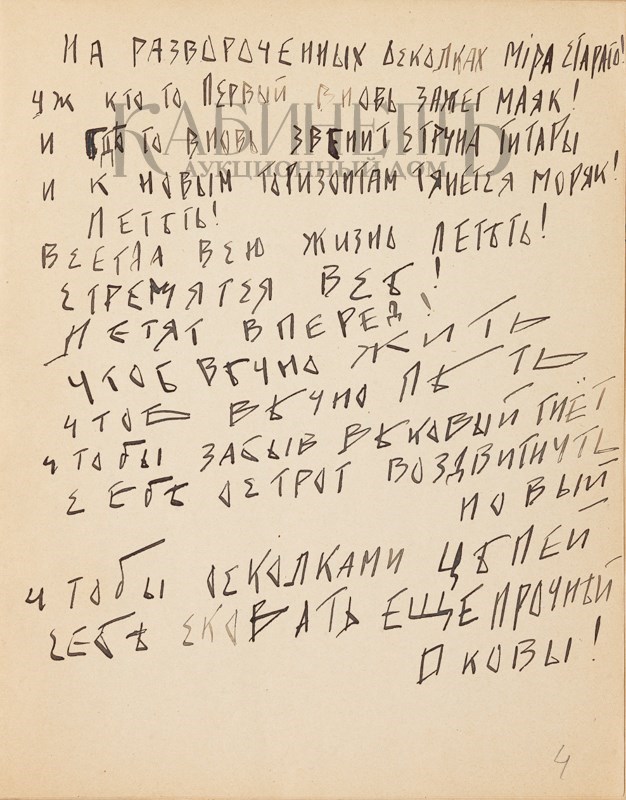 НА РАЗВОРОЧЕННЫХ ОСКОЛКАХ МІРА СТАРАГО!
УЖ КТО ТО ПЕРВЫЙ ВНОВЬ ЗАЖЕГ МАЯК!
И ГДѢ ТО ВНОВЬ ЗВЕНИТ СТРУНА ГИТАРЫ
КАБИНЕТЪ
АУКЦИОННЫЙ ДОМ
И К НОВЫМ ГОРИЗОНТАМ ТЯНЕТСЯ МОРЯК!
ЛЕТѢТЬ!
ВСЕГДА ВСЮ ЖИЗНЬ ЛЕТѢТЬ!
СТРЕМЯТСЯ ВСѢ!
ЛЕТЯТ ВПЕРЕД!
ЧТОБ ВѢЧНО ЖИТЬ
ЧТОБ ВѢЧНО ПѢТЬ
ЧТОБЫ ЗАБЫВ ВѢКОВЫЙ ГНЁТ
СЕБѢ ОСТРОГ ВОЗДВИГНУТЬ
НОВЫЙ
ЧТОБЫ ОСКОЛКАМИ ЦѢПЕЙ
СЕБѢ СКОВАТЬ ЕЩЕ ПРОЧНѢЙ
ОКОВЫ!
4